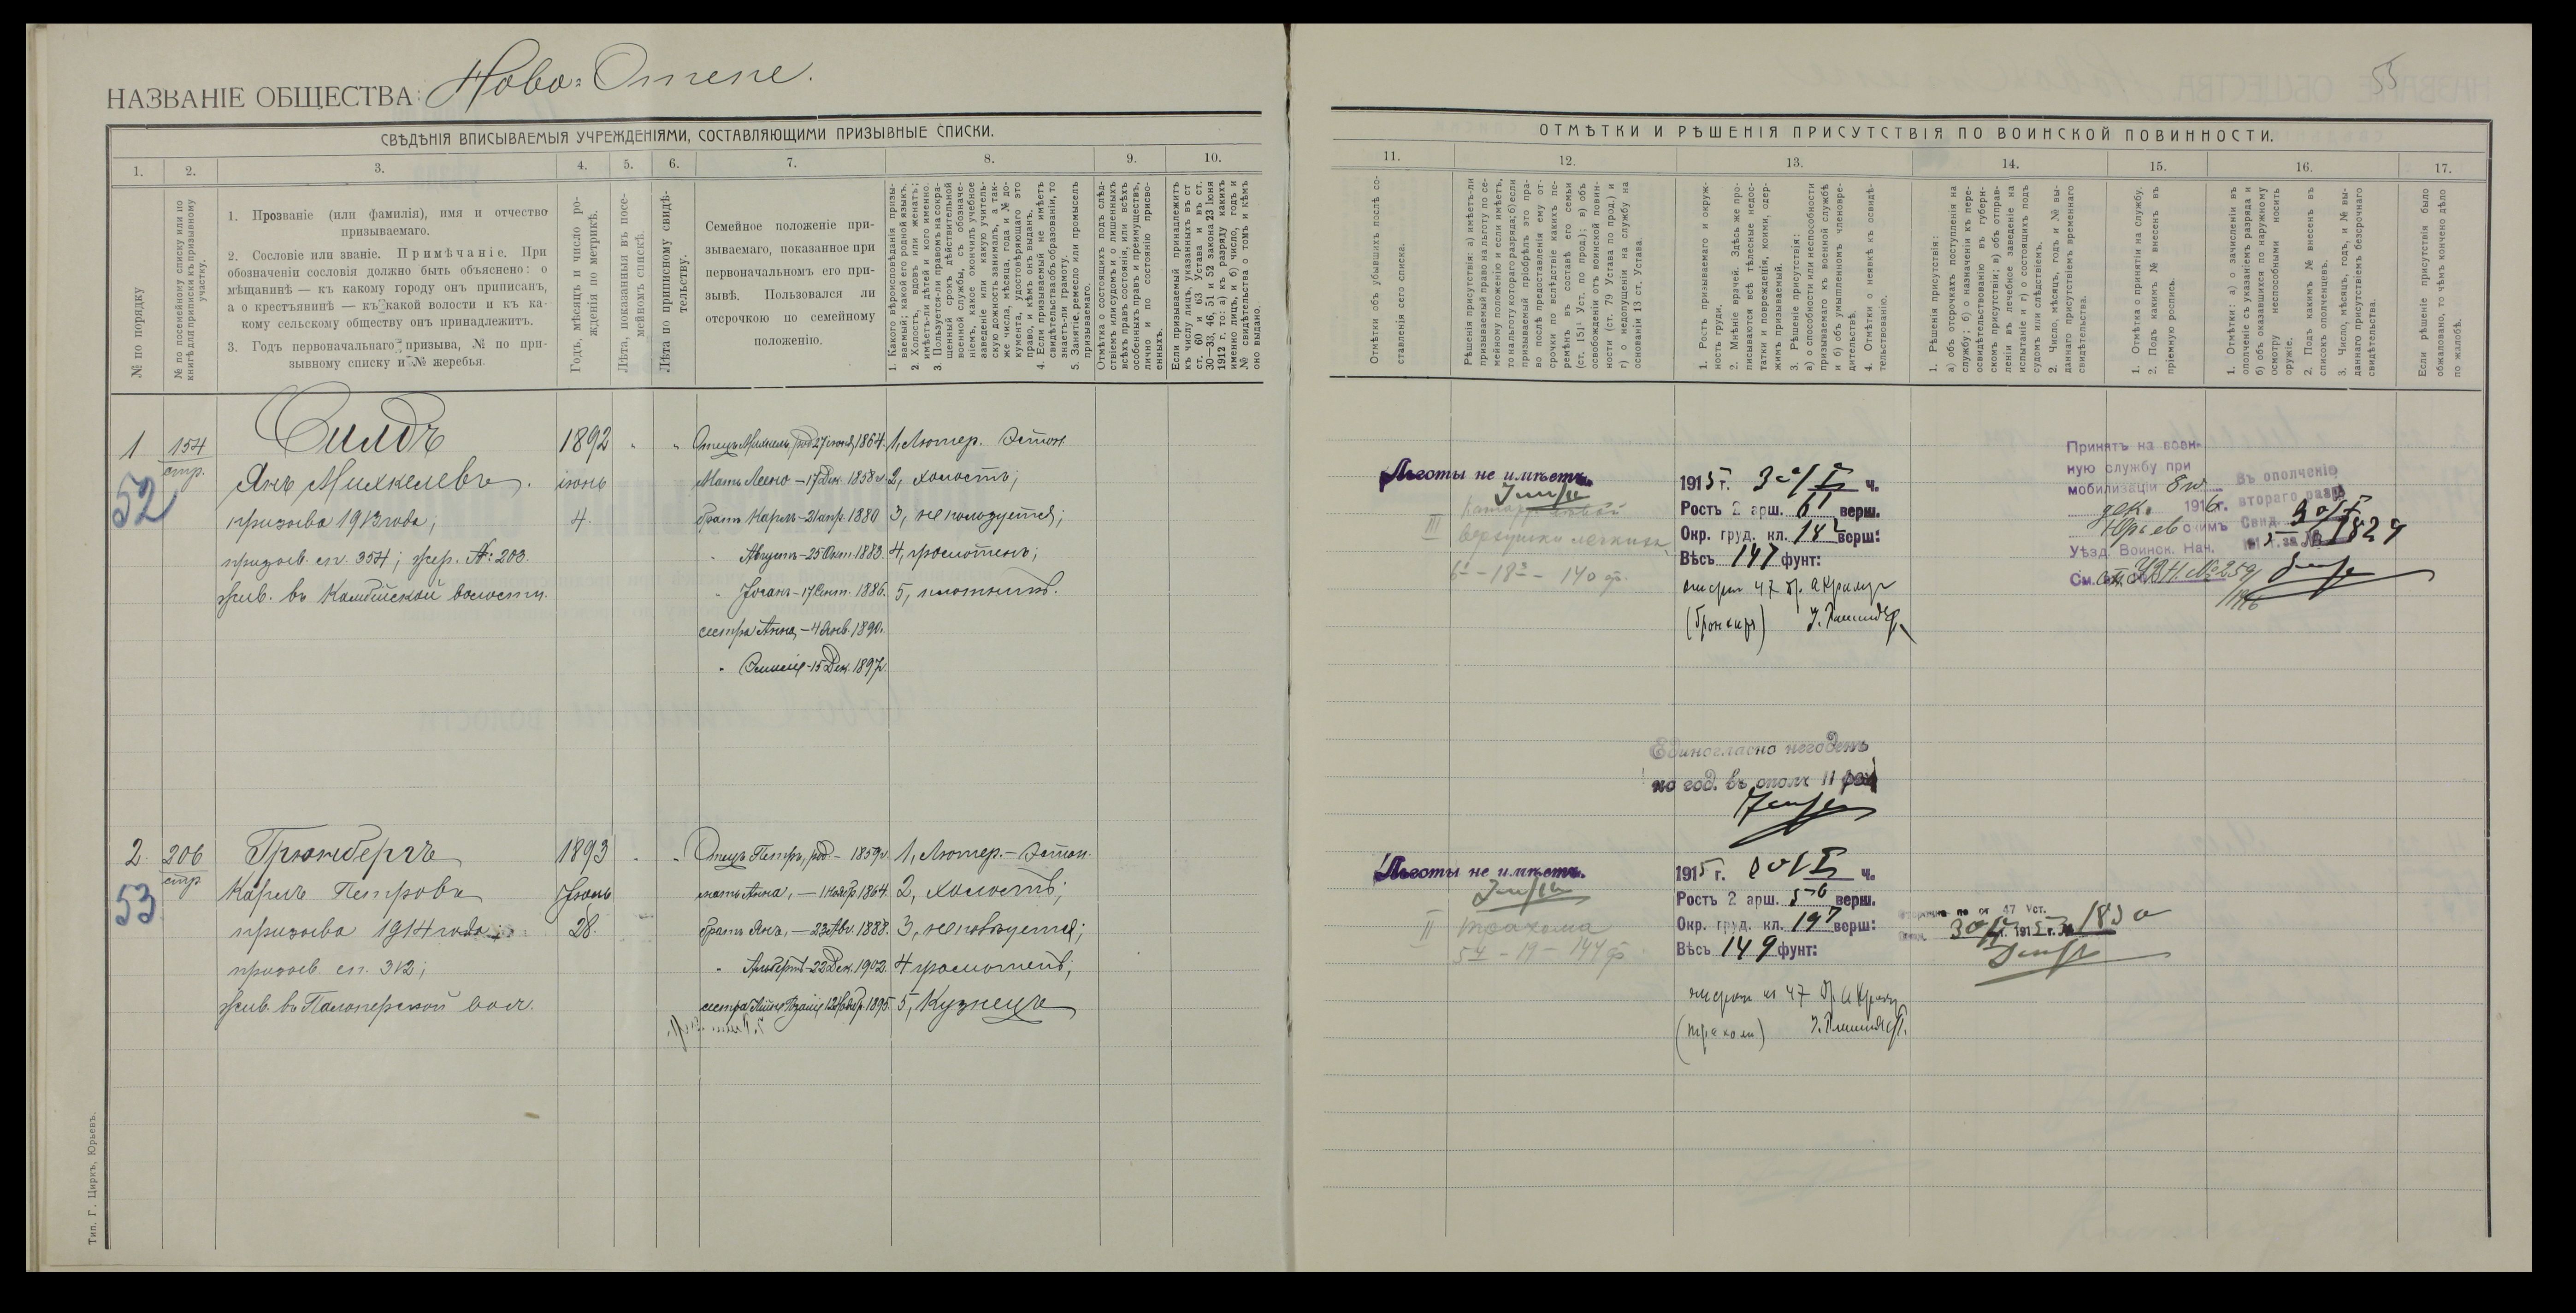 НАЗВАНІЕ ОБЩЕСТВА: Ново-Отепе.
СВѢДѢНІЯ ВПИСЫВАЕМЫЯ УЧРЕЖДЕНІЯМИ, СОСТАВЛЯЮЩИМИ ПРИЗЫВНЫЕ СПИСКИ.
1. 2. 3. 4. 5. 6. 7. 8. 9. 10.
№ по порядку
№ по посемейному списку или по
книгѣ для приписки къ призывному
участку.
1. Прозваніе (или фамилія), имя и отчество
призываемаго.
2. Сословіе или званіе. Примѣчаніе. При
обозначеніи сословія должно быть объяснено: о
мѣщанинѣ — къ какому городу онъ приписанъ,
а о крестьянинѣ — къ какой волости и къ ка-
кому сельскому обществу онъ принадлежитъ.
3. Годъ первоначальнаго призыва, № по при-
зывному списку и № жеребья.
Годъ, мѣсяцъ и число ро-
жденія по метрикѣ.
Лѣта, показанныя въ посе-
мейномъ спискѣ.
Лѣта по приписному свидѣ-
тельству.
Семейное положеніе при-
зываемаго, показанное при
первоначальномъ его при-
зывѣ. Пользовался ли
отсрочкою по семейному
положенію.
1. Какого вѣроисповѣданія призы-
ваемый; какой его родной языкъ.
2. Холостъ, вдовъ или женатъ;
имѣетъ-ли дѣтей и кого именно.
3. Пользуется-ли правомъ на сокра-
щенный срокъ дѣйствительной
военной службы, съ обозначе-
ніемъ, какое окончилъ учебное
заведеніе или какую учитель-
скую должность занималъ, а так-
же числа, мѣсяца, года и № до-
кумента, удостовѣряющаго это
право, и кѣмъ онъ выданъ.
4. Если призываемый не имѣетъ
свидѣтельства объ образованіи, то
знаетъ-ли грамоту.
5. Занятіе, ремесло или промыселъ
призываемаго.
Отмѣтка о состоящихъ подъ слѣд-
ствіемъ или судомъ и о лишенныхъ
всѣхъ правъ состоянія, или всѣхъ
особенныхъ правъ и преимуществъ,
лично и по состоянію присво-
енныхъ.
Если призываемый принадлежитъ
къ числу лицъ, указанныхъ въ ст
ст. 60 и 63 Устава и въ ст.
30—33, 46, 51 и 52 закона 23 Іюня
1912 г. то: а) къ разряду какихъ
именно лицъ, и б) число, годъ и
№ свидѣтельства о томъ и кѣмъ
оно выдано.
1
154
стр.
52
Силдъ
Янъ Михкелевъ.
призыва 1913 года;
призыв. сп. 354; жер. №: 203.
жив. въ Камбійской волости.
1892
іюнь
4.
Отецъ Михкель, род 27 іюня, 1864.
Мать Леено — 17 Дек. 1858 г.
братъ Карлъ — 21 апр. 1880
" Августъ — 25 Окт. 1883.
" Іоганъ — 17 Сент. 1886.
сестра Анна, — 4 Янв. 1890.
" Эмилія — 15 Дек. 1897.
1, Лютер. Эстон.
2, холостъ;
3, не пользуется;
4, грамотенъ;
5, плотникъ.
2.
206
стр
53
Грюнбергъ
Карлъ Петровъ
призыва 1914 года;
призыв. сп. 312;
жив. въ Палоперской вол.
1893
Іюнь
28.
Отецъ Петръ, род. — 1859 г.
мать Анна, — 1 ноябр 1864
братъ Янъ, — 23 Авг. 1888.
" Альбертъ — 22 Дек. 1902.
1, Лютер. — Эстон.
2, холостъ;
3, не пользуется;
4 грамотенъ;
5, Кузнецъ
Тип. Г. Циркъ, Юрьевъ.
55
ОТМѢТКИ И РѢШЕНІЯ ПРИСУТСТВІЯ ПО ВОИНСКОЙ ПОВИННОСТИ.
11. 12. 13. 14. 15. 16. 17.
Отмѣтки объ убывшихъ послѣ со-
ставленія сего списка.
Рѣшенія присутствія: а) имѣетъ-ли
призываемый право на льготу по се-
мейному положенію если имѣетъ,
то на льготу котораго разряда; б) если
призываемый пріобрѣлъ это пра-
во послѣ предоставленія ему от-
срочки по вслѣдствіе какихъ пе-
ремѣнъ въ составѣ его семьи
(ст. 15¹ Уст. по прод.); в) объ
освобожденіи отъ воинской повин-
ности (ст. 79 Устава по прод.) и
г) о недопущеніи на службу на
основаніи 13 ст. Устава.
1. Ростъ призываемаго и окруж-
ность груди.
2. Мнѣніе врачей. Здѣсь же про-
писываются всѣ тѣлесные недос-
татки и поврежденія, коими, одер-
жимъ призываемый.
3. Рѣшеніе присутствія:
а) о способности или неспособности
призываемаго къ военной службѣ
и б) объ умышленномъ членовре-
дительствѣ.
4. Отмѣтки о неявкѣ къ освидѣ-
тельствованію.
1. Рѣшенія присутствія:
а) объ отсрочкахъ поступленія на
службу; б) о назначеніи къ пере-
освидѣтельствованію въ губерн-
скомъ присутствіи; в) объ отправ-
леніи въ лечебное заведеніе на
испытаніе и г) о состоящихъ подъ
судомъ или слѣдствіемъ.
2. Число, мѣсяцъ, годъ и № вы-
даннаго присутствіемъ временнаго
свидѣтельства.
1. Отмѣтка о принятіи на службу.
2. Подъ какимъ № внесенъ въ
пріемную роспись.
1. Отмѣтки: а) о зачисленіи въ
ополченіе съ указаніемъ разряда и
б) объ оказавшихся по наружному
осмотру неспособными носить
оружіе.
2. Подъ какимъ № внесенъ въ
списокъ ополченцевъ.
3. Число, мѣсяцъ, годъ, и № вы-
даннаго присутствіемъ безсрочнаго
свидѣтельства.
Если рѣшеніе присутствія было
обжаловано, то чѣмъ кончено дѣло
по жалобѣ.
Льготы не имѣетъ.
III
верхушки легкихъ
140 ф.
1915 г. 30/I ч.
Ростъ 2 арш. 6 верш.
Окр. груд. кл. верш:
Вѣсъ 147 фунт:
Принятъ на воен-
ную службу при
мобилизаціи 8го
дек. 1916 г.
Юрьевскимъ
Уѣзд. Воинск. Нач.
Въ ополченіе
втораго разр
Свид. 30/I
1829
Единогласно негоденъ
но год. въ ополч II раз
Льготы не имѣетъ.
II трахома
19 — 144 ф
1915 г. 30/I ч.
Ростъ 2 арш. верш.
Окр. груд. кл. 19⁷ верш:
Вѣсъ 149 фунт:
по ст 47 Уст.
30/I 1915 г. № 1830